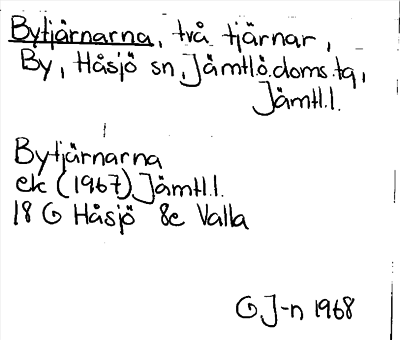 Bytjärnarna, två tjärnar,
By, Håsjö sn, Jämtlö.doms.tg,
Jämtl.l.
Bytjärnarna
ek (1967) Jämtl.l.
18 G Håsjö 8e Valla
G J-n 1968